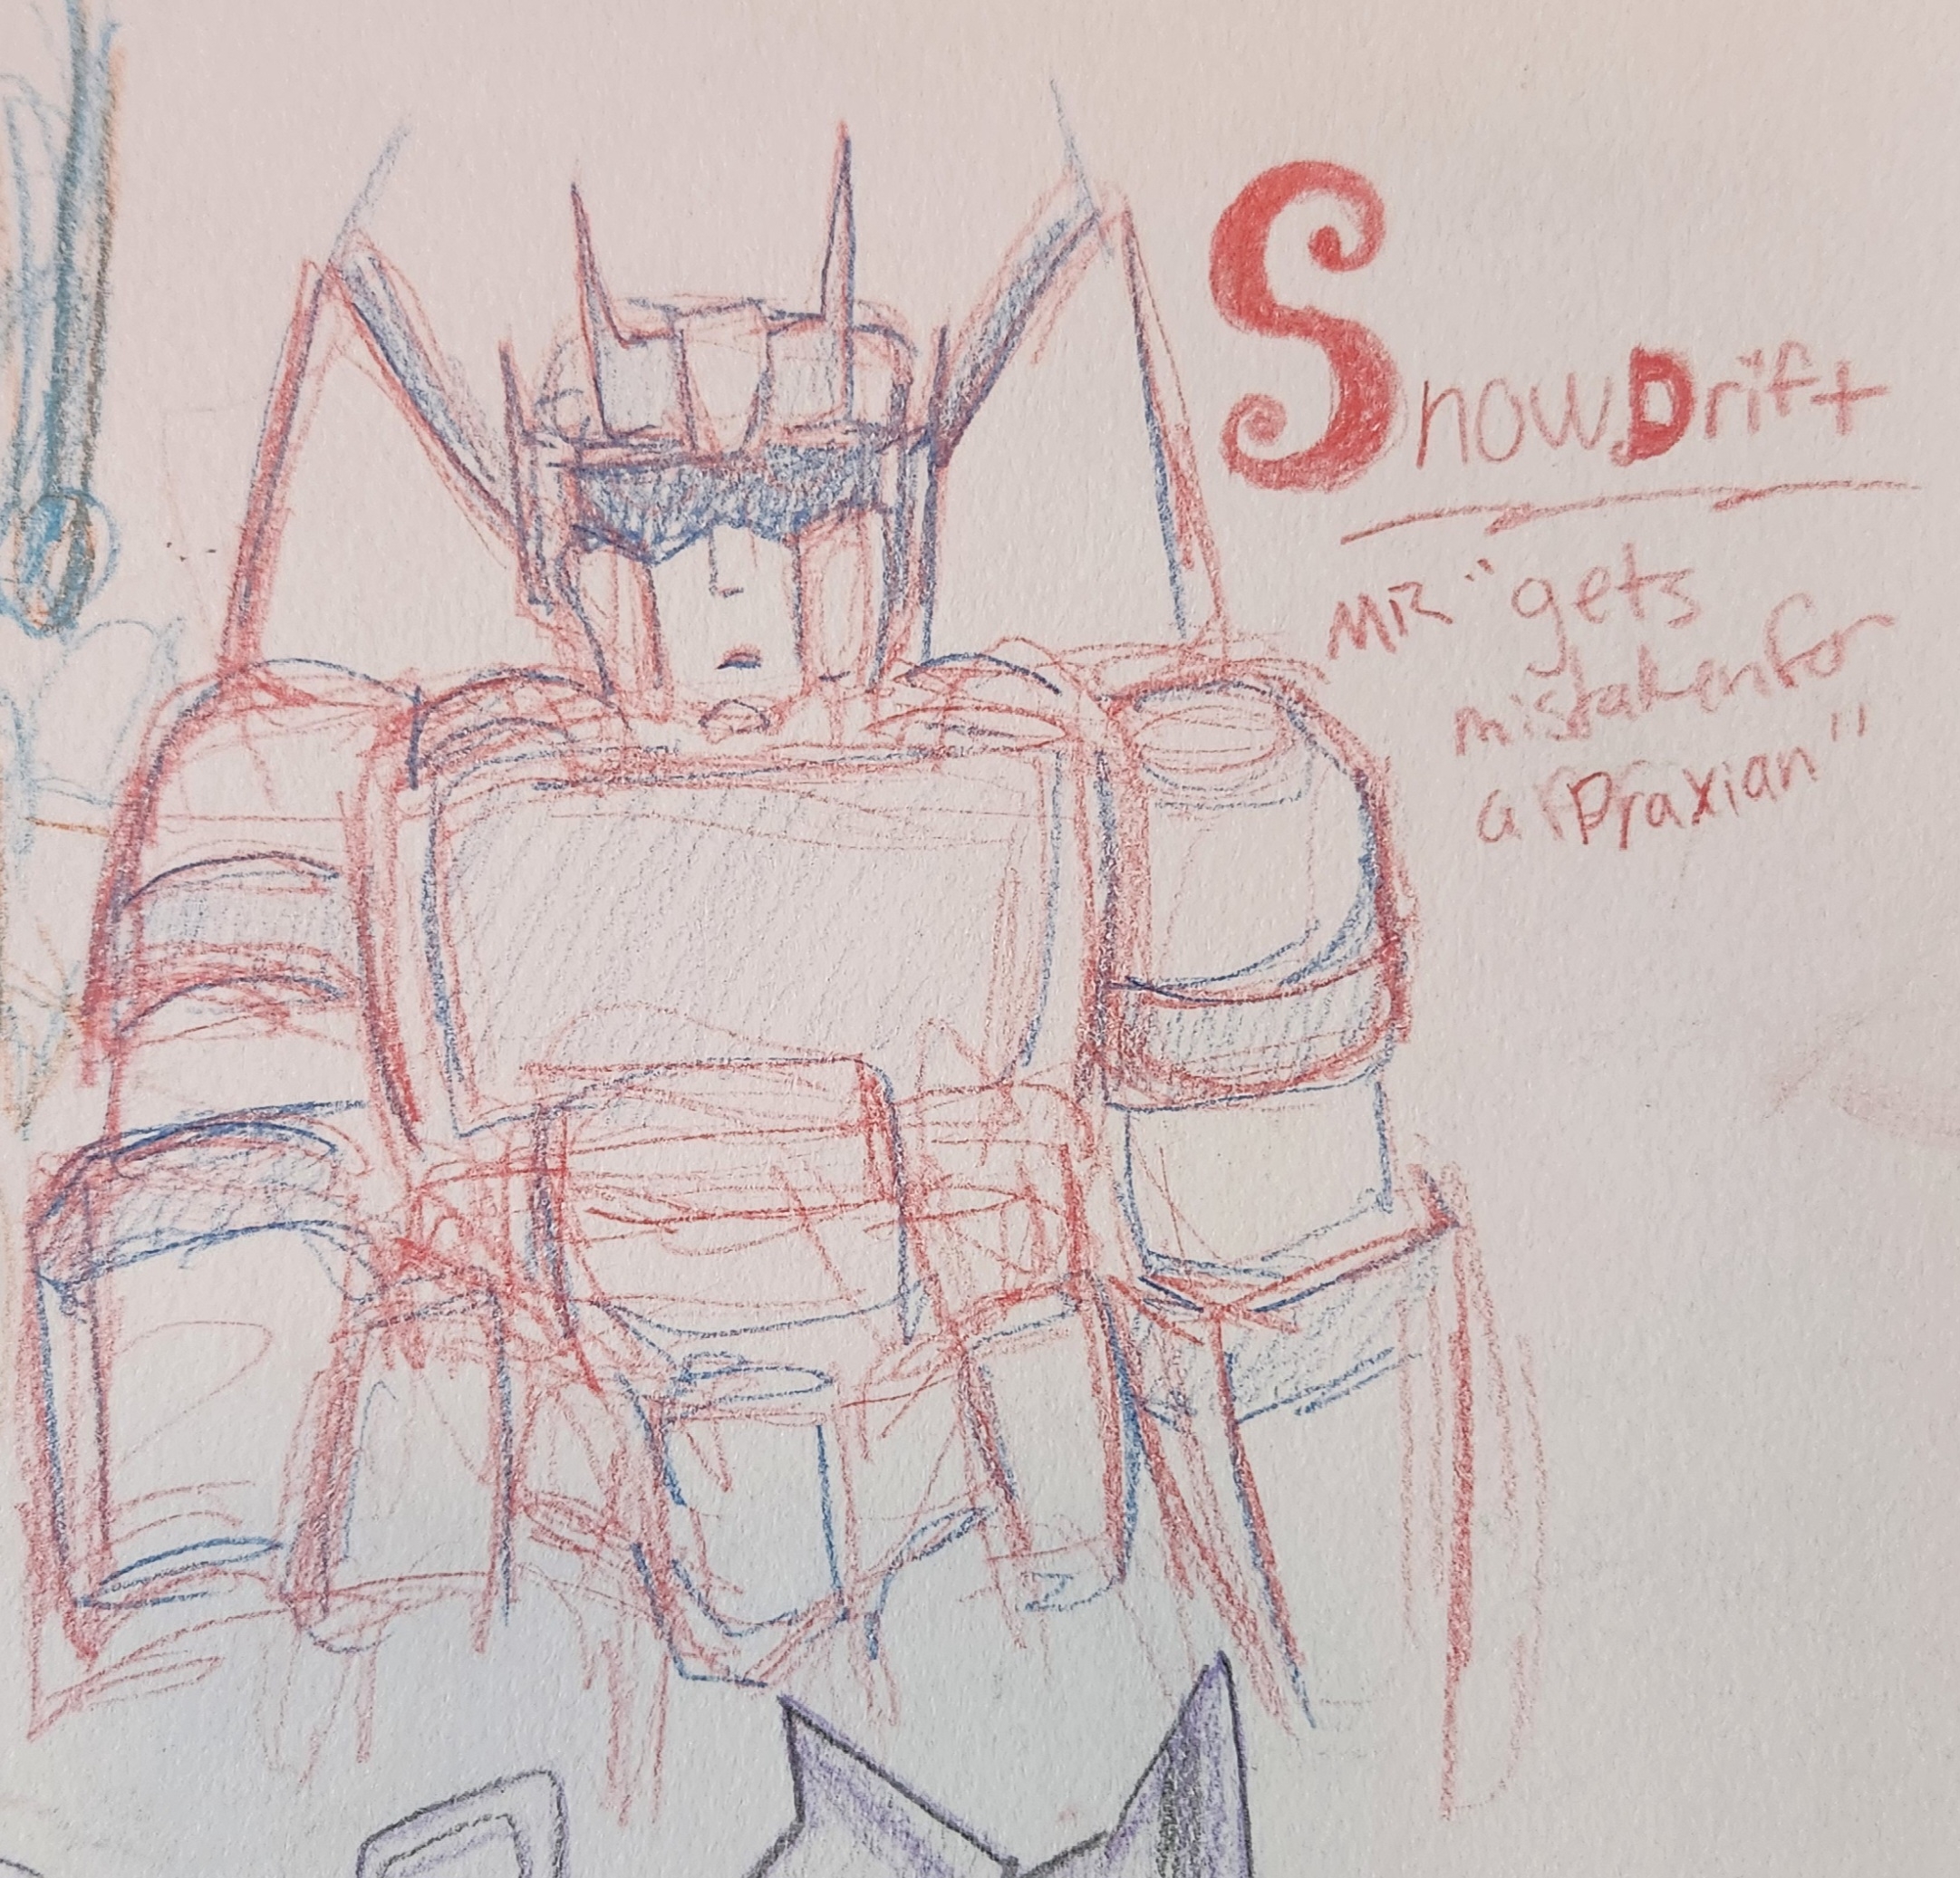 SnowDrift
MR "gets
mistaken for
a Praxian"